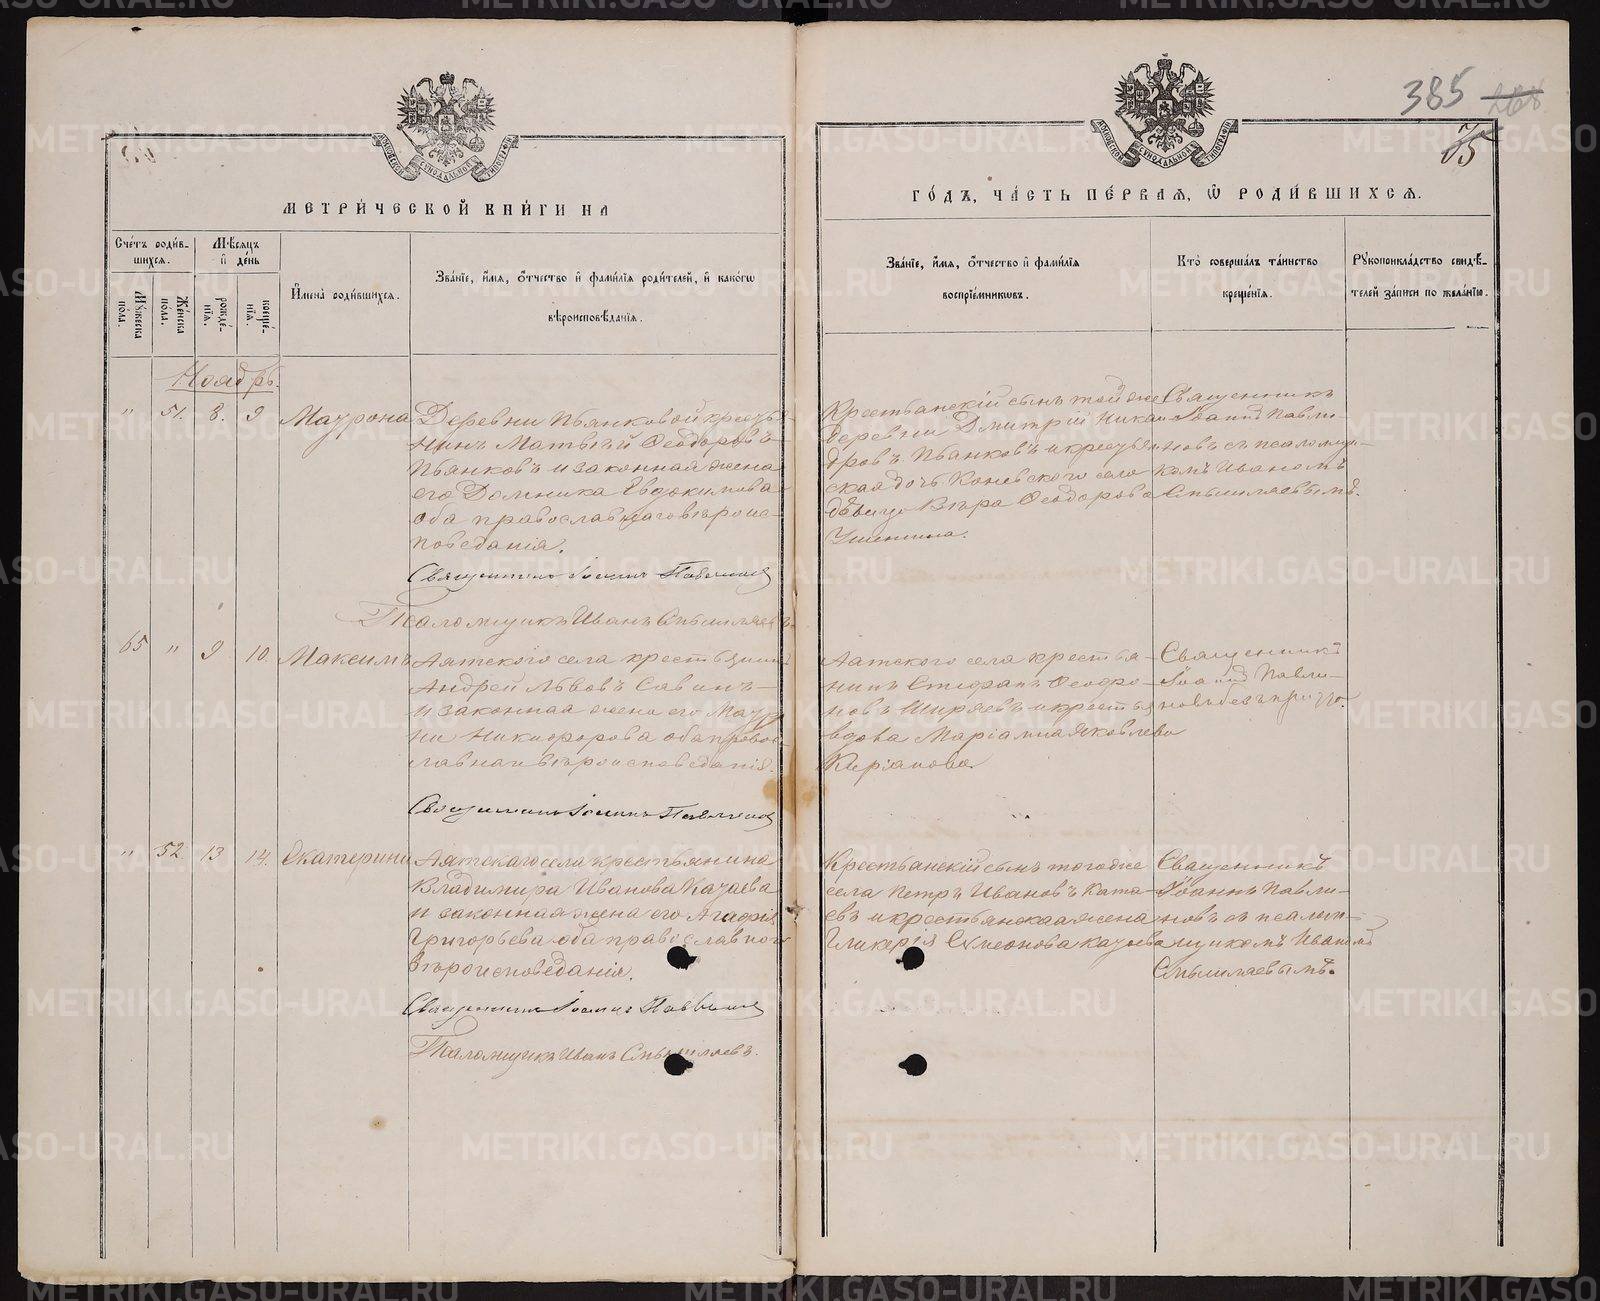 385
75
МЕТРИ́ЧЕСКОЙ КНИ́ГИ НА
ГО́ДЪ, ЧА́СТЬ ПЕ́РВАЯ, Ѡ҆ РОДИ́ВШИХСЯ.
Сче́тъ роди́в-
шихся.
Мѣ́сяцъ
и҆ де́нь
Мꙋ́жеска
по́ла.
Же́нска
по́ла.
рожде́-
нїя.
креще́-
нїя.
И҆мена̀ роди́вшихся.
Зва́нїе, и҆́мя, ѻ҆́тчество и҆ фами́лїя роди́телей, и҆ како́гѡ
вѣроисповѣ́данїя.
Зва́нїе, и҆́мя, ѻ҆́тчество и҆ фами́лїя
воспрїе́мниковъ.
Кто̀ соверша́лъ та́инство
креще́нїя.
Рꙋкоприкла́дство свидѣ́-
телей за́писи по жела́нїю.
Ноябрь.
" 51. 8. 9. Матрона
Деревни Пьянковой кресть-
нинъ Матѳей Ѳеодоровъ
Пьянковъ и законная жена
его Домника Евдокимова
оба православнаго вѣроис-
повѣданія.
Священникъ Іоаннъ Павлиновъ
Псаломщикъ Иванъ Смышляевъ
Крестьянскій сынъ той же
деревни Дмитрій Никан-
дровъ Пьянковъ и крестьян
ская дочь Коневскаго села
дѣвица Вѣра Ѳеодорова
Священникъ
Іоаннъ Павли-
новъ съ псаломщи-
комъ Иваномъ
Смышляевымъ.
65 " 9 10. Максимъ
Аятскаго села крестьянинъ
Андрей Львовъ Савинъ
и законная жена его
Никифорова оба правос-
лавнаго вѣроисповѣданія.
Священникъ Іоаннъ Павлиновъ
Аятскаго села крестья-
нинъ Стефанъ Ѳеодо-
ровъ Ширяевъ и крестьян
вдова Маріамна Яковлева
Кирьянова.
Священникъ
Іоаннъ Павли-
новъ безъ
" 52 13 14. Екатерина
Аятскаго села крестьянина
Владимира Иванова Казаева
и законная жена его Агафія
Григорьева оба православнаго
вѣроисповѣданія.
Священникъ Іоаннъ Павлиновъ
Псаломщикъ Иванъ Смышляевъ.
Крестьянскій сынъ тогоже
села Петръ Ивановъ Каза-
евъ и крестьянская жена
Гликерія Симеонова Казаева
Священникъ
Іоаннъ Павли-
новъ съ псалом-
щикомъ Иваномъ
Смышляевымъ.
METRIKI.GASO-URAL.RU